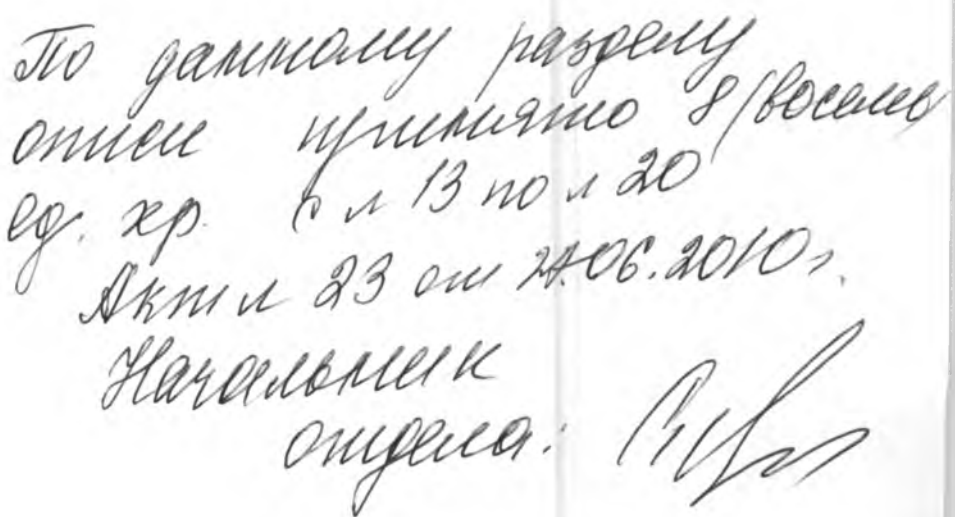 По данному разделу
описи принято 8 (восемь
ед. хр. с л 13 по л 20
Акт л 23 от 24.06.2010 г.
Начальник
отдела: